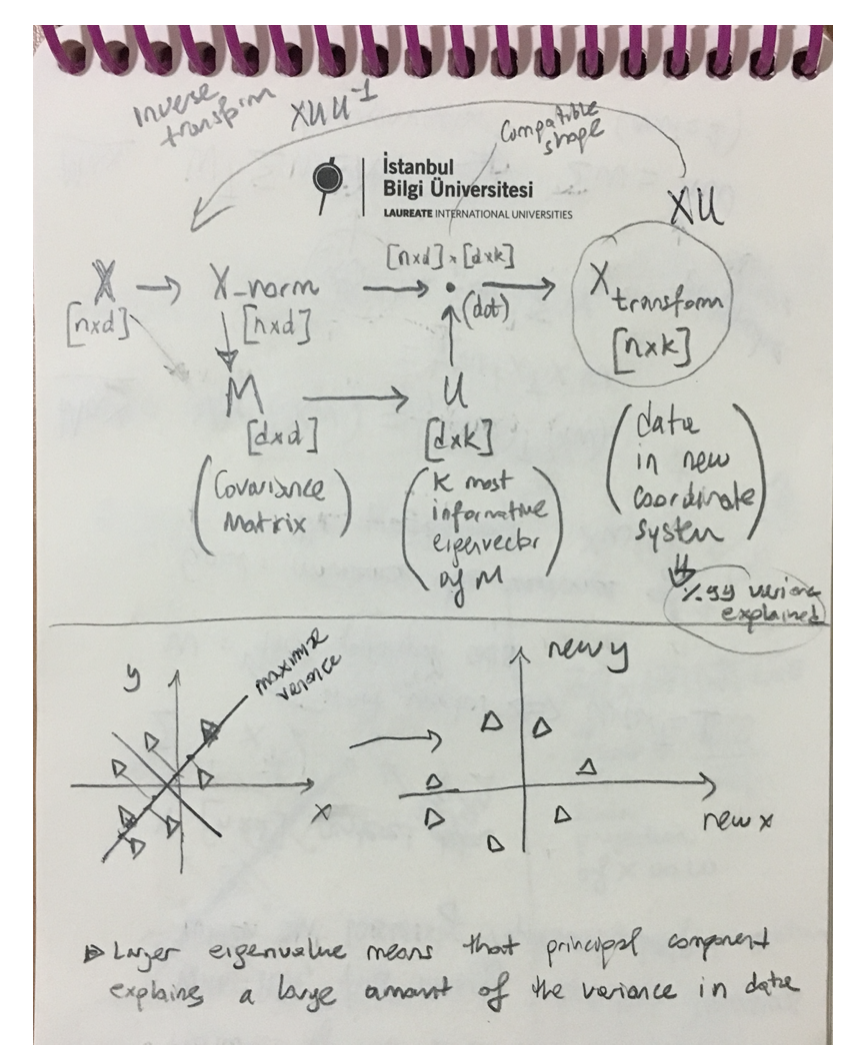 Inverse
transform
XUU⁻¹
Compatible
shape
İstanbul
Bilgi Üniversitesi
LAUREATE INTERNATIONAL UNIVERSITIES
XU
[nxd] x [dxk]
X → X_norm → • (dot) → X transform
[nxd] [nxd] [nxk]
M → U
[dxd] [dxk]
(Covariance
Matrix)
(K most
informative
eigenvector
of M)
(data
in new
coordinate
system)
%99 variance
explained
maximize
variance
y
x
new y
new x
Larger eigenvalue means that principal component
explains a large amount of the variance in data